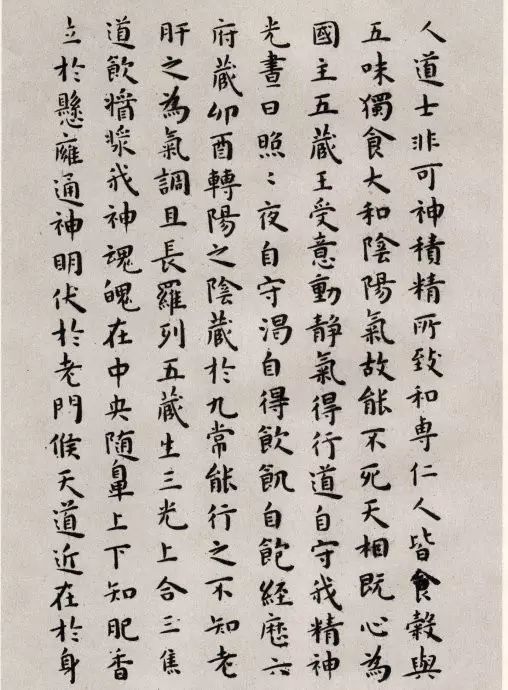 人道士非可神積精所致和専仁人皆食穀與
五味獨食大和陰陽氣故能不死天相既心為
國主五蔵王受意動靜氣得行道自守我精神
光晝日照〻夜自守渴自得飲飢自飽經歷六
府蔵卯酉轉陽之陰蔵於九常能行之不知老
肝之為氣調且長羅列五蔵生三光上合三焦
道飲醬漿我神魂魄在中央随鼻上下知肥香
立於懸廱通神明伏於老門候天道近在於身